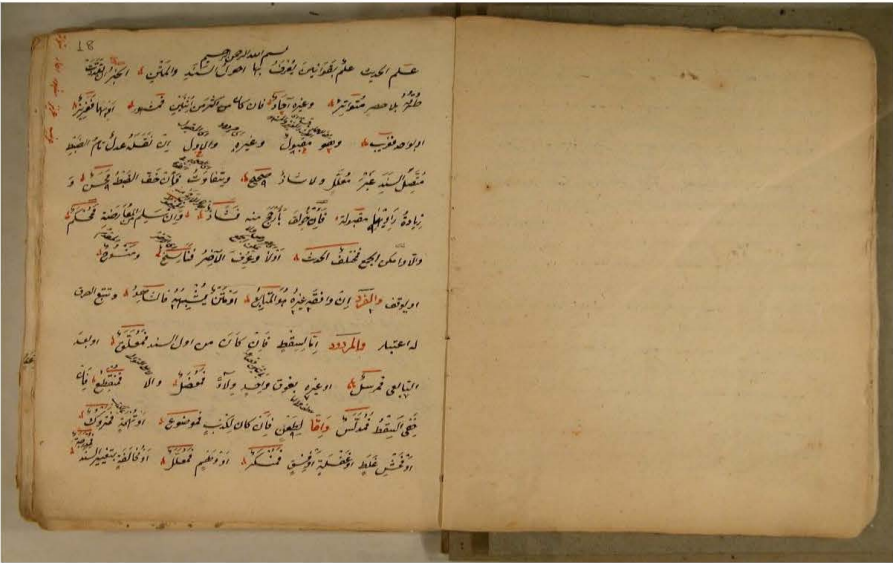 بسم الله الرحمن الرحيم
علم الحديث علم بقوانين يعرف بها احوال السند والمتن الخبر ان تعددت
طرقه بلا حصر متواتر وغيره آحاد فان كان من اكثر من اثنين فمشهور او بهما فعزيز
او بواحد فغريب وهو مقبول وغيره والاول ان نقله عدل تام الضبط
متصل السند غير معلل ولا شاذ صحيح ويتفاوت فان خف الضبط فحسن و
زيادة راويهما مقبولة فان خولف بارجح منه فشاذ وان سلم من المعارضة فمحكم
والا وامكن الجمع فمختلف الحديث اولا وعرف الآخر فناسخ ومنسوخ
او يوقف والفرد ان وافقه غيره فهو المتابع او متن يشبهه فالشاهد وتتبع الطرق
له اعتبار والمردود اما لسقط فان كان من اول السند فمعلق او بعد
التابعي فمرسل او غيره بفوق واحد ولاء فمعضل والا فمنقطع فان
خفي السقط فمدلس واما لطعن فان كان لكذب فموضوع او تهمته فمتروك
او فحش غلط او غفلة او فسق فمنكر او وهم فمعلل او مخالفة بتغيير السند